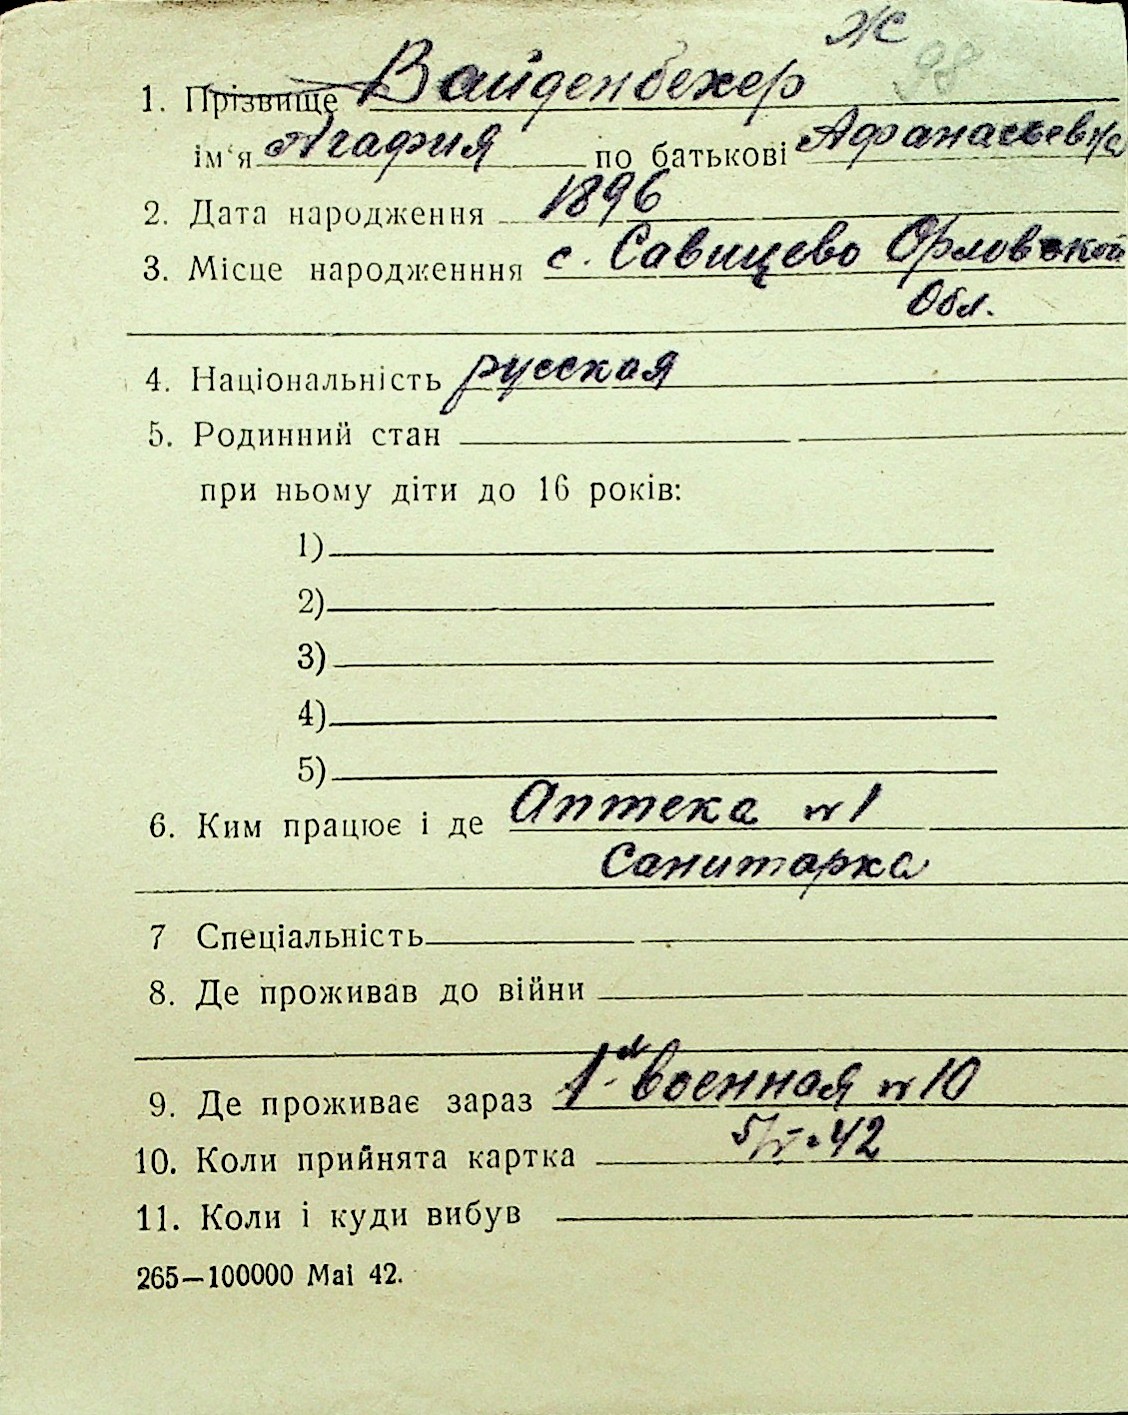 Ж 98
1. Прізвище Вайденбехер
ім'я Агафия по батькові Афанасьевна
2. Дата народження 1896
3. Місце народженння с. Савицево Орловской
Обл.
4. Національність русская
5. Родинний стан
при ньому діти до 16 років:
1)
2)
3)
4)
5)
6. Ким працює і де Аптека №1
Санитарка
7 Спеціальність
8. Де проживав до війни
9. Де проживає зараз 1-я военная №10
10. Коли прийнята картка 5/V-42
11. Коли і куди вибув
265—100000 Mai 42.